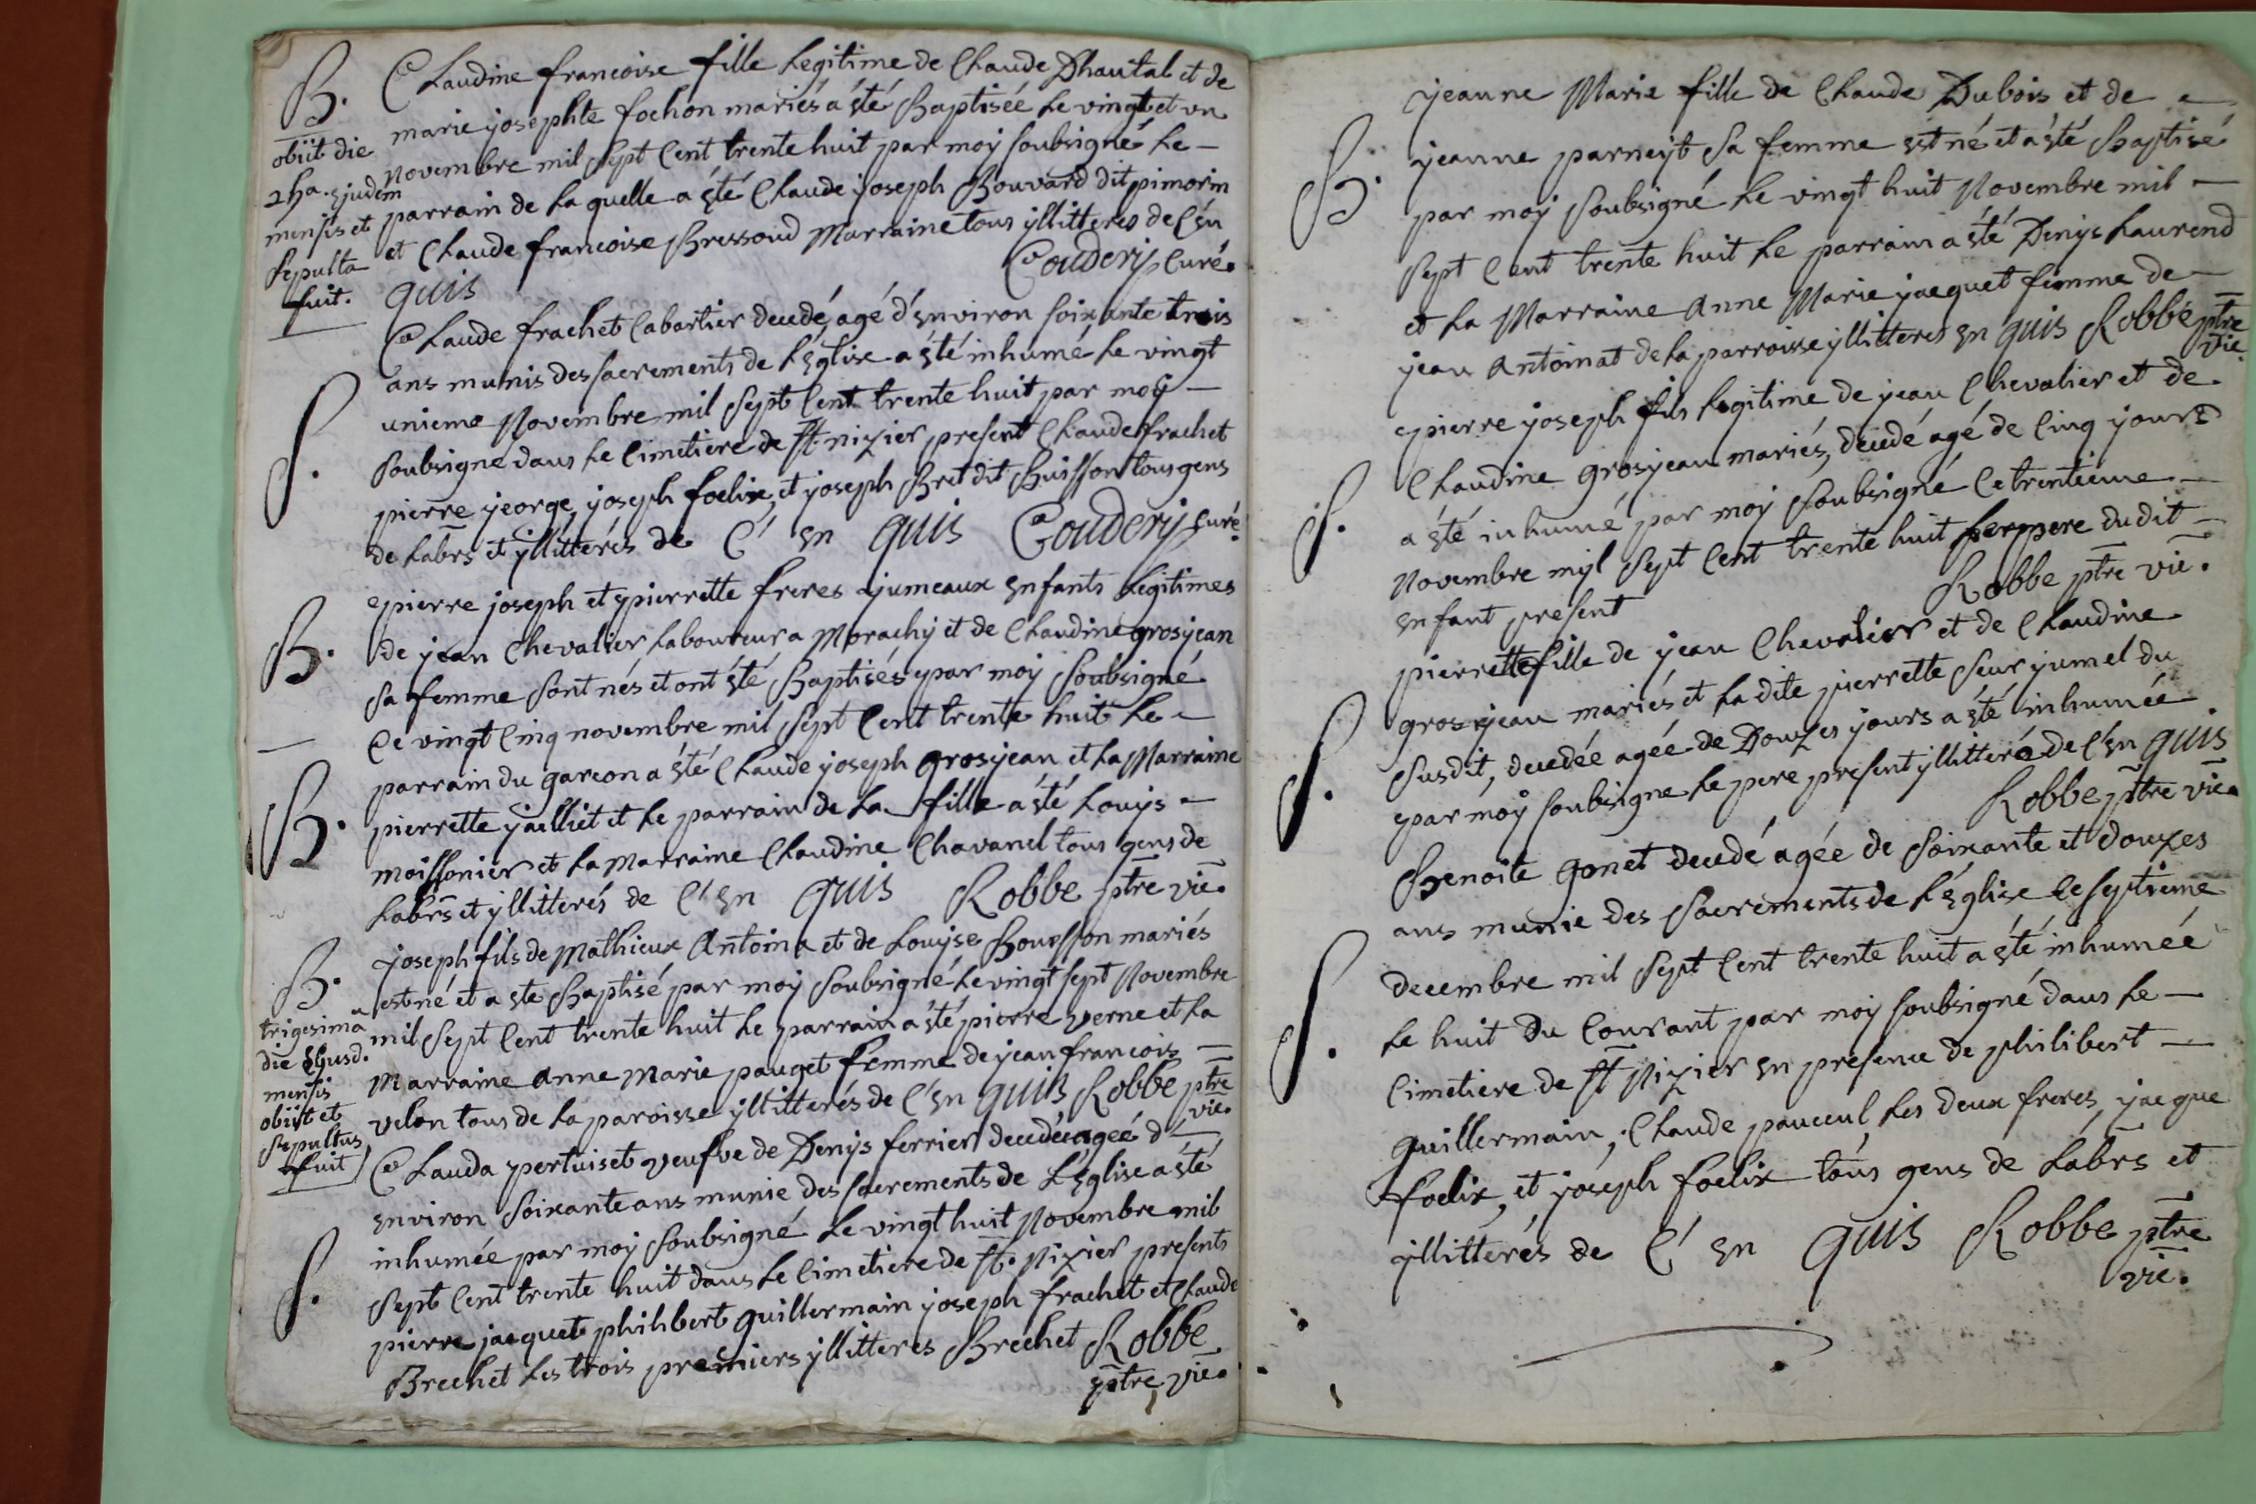 B.
Claudine francoise fille Legitime de Claude Dhautal et de
marie josephte fochon mariés a été Baptisée Le vingt et un
novembre mil sept Cent trente huit par moy soubsigné Le –
parrain de La quelle a été Claude joseph Bouvard dit pimorin
et Claude francoise Bressoud Marraine tous yllitteres de C'en
quis Couderij Curé.
obiit die
24a. ejudem
mensis et
sepulta
fuit.
Claude frachet Cabartier decedé, agé d'environ soixante trois
ans munis des sacrements de L'Eglise a été inhumé Le vingt
unieme Novembre mil sept Cent trente huit par moy –
S.
soubsigné dans Le Cimetiere de st. nizier present Claude frachet
pierre jeorge, joseph foelix, et joseph Bret dit Buisson tous gens
de Labrs et yllitterés de C' en quis Couderij Curé.
pierre joseph et pierrette freres jumeaux enfants Legitimes
B.
de jean Chevalier Laboureur a Morachy et de Claudine grosjean
sa femme sont nés et ont été Baptisés par moy soubsigné
Ce vingt Cinq novembre mil sept Cent trente huit Le –
parrain du garcon a été Claude joseph grosjean et La Marraine
B.
pierrette jailliet et Le parrain de La fille a été Louys –
moissonier et La Marraine Claudine Chavanel tous gens de
Labrs et yllitterés de C' en quis Robbe ptre vic.
B.
joseph fils de Mathieux Antoine et de Louyse Bouisson mariés
est né et a ete Baptisé par moy soubsigné Le vingt sept Novembre
mil sept Cent trente huit Le parrain a été pierre verne et La
Marraine anne marie pauget femme de jean francois –
velon tous de La paroisse yllitterés de C'en quis Robbe ptre
vic.
trigesima
die ejusd.
mensis
obiit et
sepultus
fuit
Clauda pertuiset veufve de Denys ferrier decedée agée d' –
environ soixante ans munie des sacrements de L'Eglise a été
inhumée par moy soubsigné Le vingt huit Novembre mil
S.
sept Cent trente huit dans Le Cimetiere de st. Nizier presents
pierre jacquet philibert guillermain joseph frachet et Claude
Brechet Les trois premiers yllitteres Brechet Robbe
ptre vic.
jeanne Marie fille de Claude Dubois et de –
B.
jeanne parneyt sa femme est né et a été Baptisé
par moy soubsigné Le vingt huit Novembre mil –
sept Cent trente huit Le parrain a été Denys Laurend
et La Marraine Anne Marie jacquet femme de –
jean Antoinat de La parroisse yllitteres en quis Robbé ptre
vic.
pierre joseph fils Legitime de jean Chevalier et de
Claudine grosjean mariés, decedé agé de Cinq jours
S.
a été inhumé par moy soubsigné Le trentieme –
Novembre myl sept Cent trente huit Le pere dudit –
enfant present Robbe ptre vic.
pierrette fille de jean Chevalier et de Claudine
grosjean mariés et La dite pierrette seur jumel du
S.
susdit, decedée agée de Douzes jours a été inhumée
par moy soubsigne Le pere present yllitteré de C'en quis
Robbe ptre vic.
Benoite gonet decedé agée de soixante et douzes
ans munie des sacrements de L'Eglise Le septieme
S.
decembre mil sept Cent trente huit a été inhumée
Le huit du Courant par moy soubsigné dans Le –
Cimetiere de st Nizier en presence de philibert –
guillermain, Claude pauceul Les deux freres, jacque
foelix, et joseph foelix tous gens de Labrs et
yllitterés de C' en quis Robbe ptre
vic.